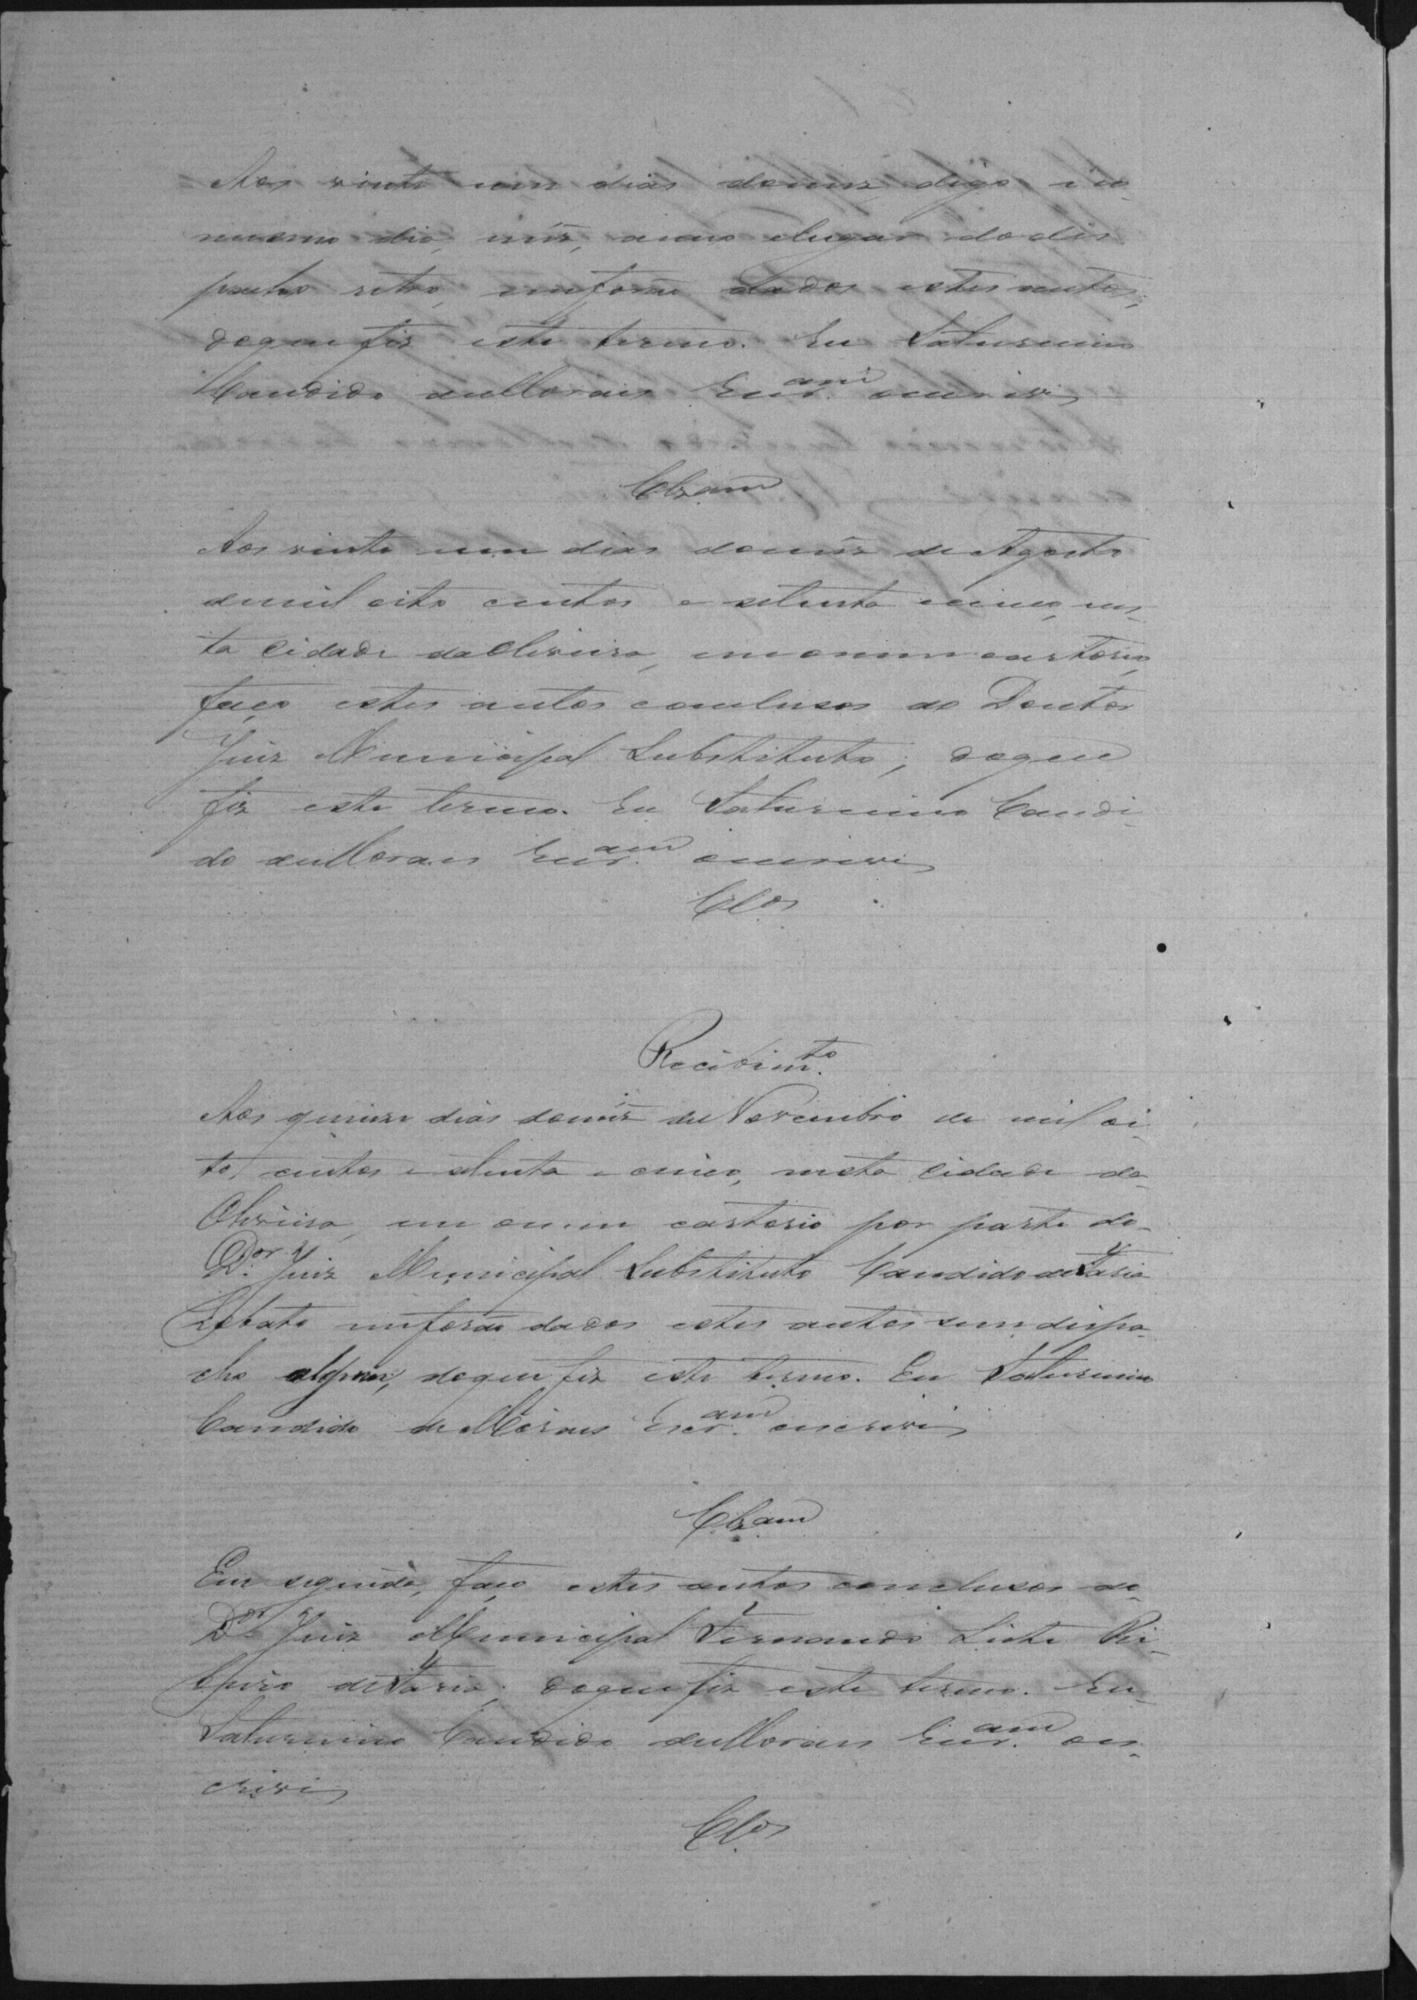 Aos vinte um dias domez, digo, e no
mesmo dia, mez, anno elugar dodes
pacho retro, me forão dados estes autos,
doque fiz este termo. Eu Saturnino
Candido de Moraes Escr.am oescrivi
Clzam
Aos vinte um dias domez de Agosto
demil oito centos e setenta cinco, nes-
ta Cidade da Oliveira, em omeu cartorio,
faço estes autos conclusos ao Doutor
Juiz Municipal Substituto; doque
fiz este termo. Eu Saturnino Candi-
do de Moraes Escr.am oescrivi
Clos
Recebim.to
Aos quinze dias domez de Novembro de mil oi-
to centos e setenta e cinco, nesta Cidade da
Oliveira, em omeu cartorio por parte do
D.or Juiz Municipal Substituto Candido de Faria
Lobato me forão dados estes autos sem despa-
cho algum, doque fiz este termo. Eu Saturnino
Candido de Moraes Escr.am oescrivi
Clzam
Em seguida, faço estes autos conclusos ao
D.or Juiz Municipal Fernando Leite Ri-
beiro de Faria; doque fiz este termo. Eu
Saturnino Candido de Moraes Escr.am oes-
crivi
Clos